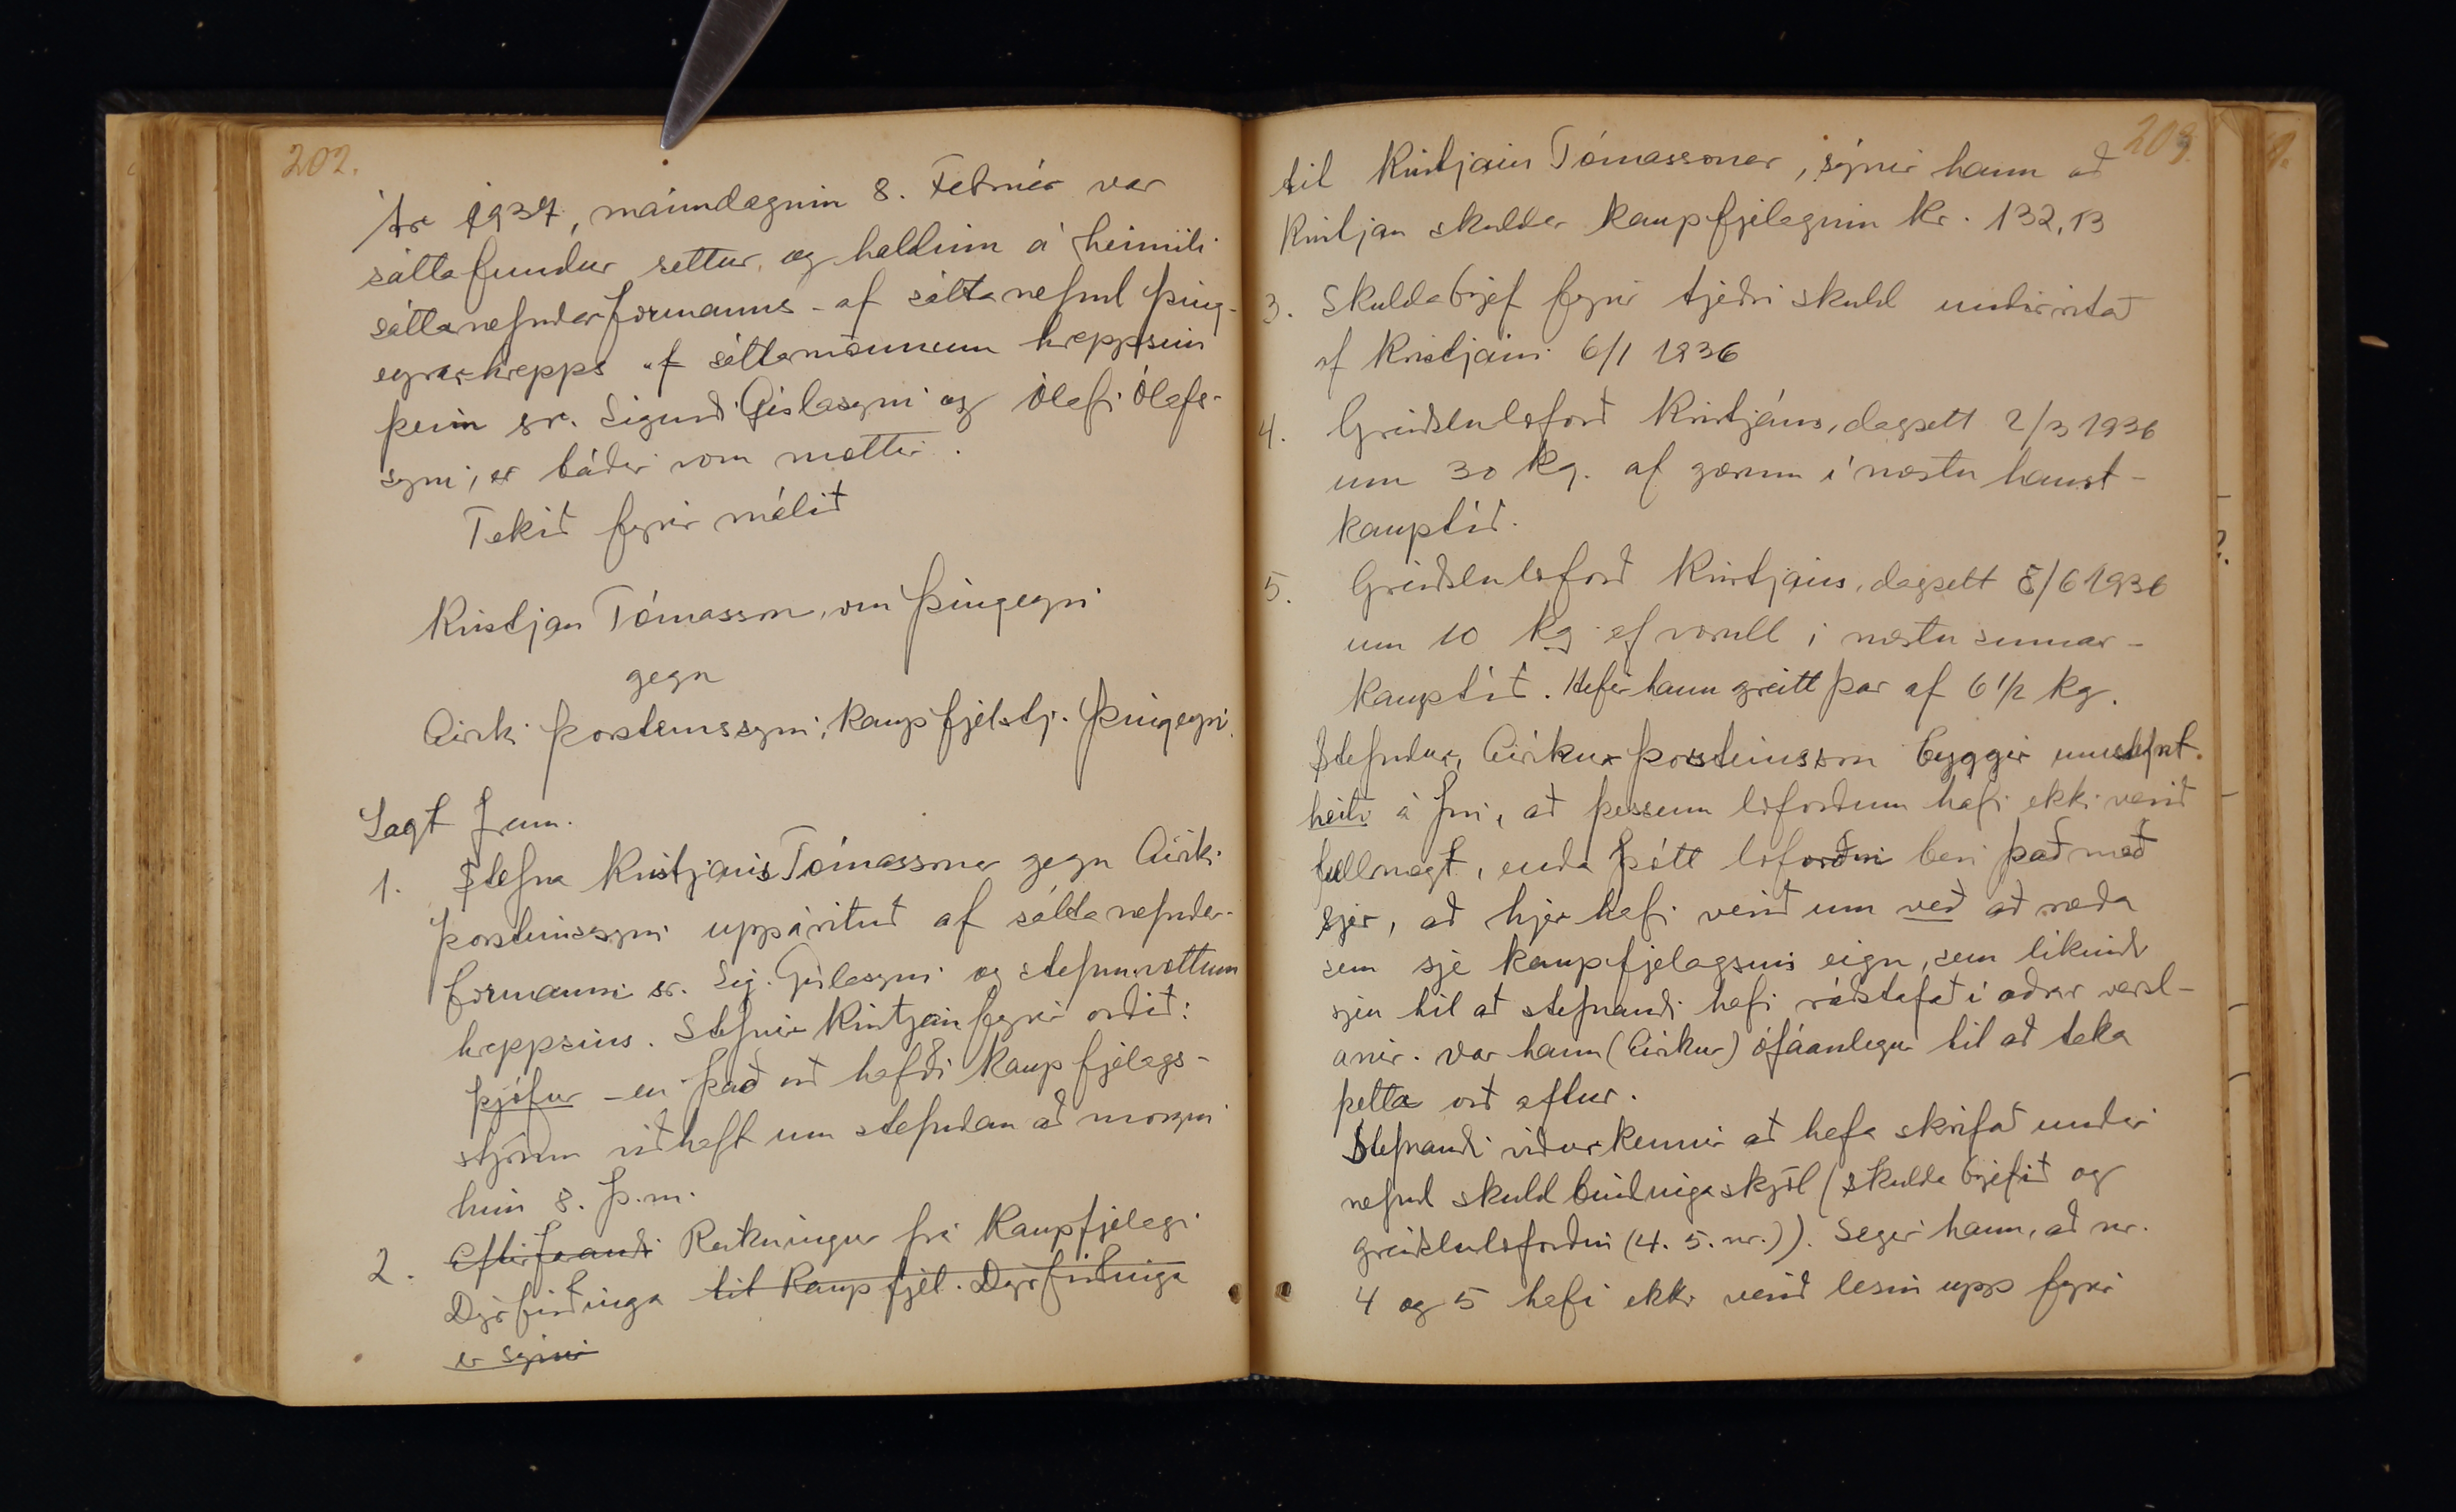 202.
Ár 1937, mánudaginn 8. Febrúar var
sáttafundur settur og haldinn á heimili
sáttanefndarformanns - af sáttanefnd Þing-
eyrarhrepps af sáttamönnum hreppsins
þeim sr. Sigurði Gíslasyni og Ólafi Ólafs-
syni, er báðir voru mættir.
Tekið fyrir málið
Kristján Tómasson, Þingeyri
gegn
Eiríki Þorsteinssyni, kaupfjelstj. Þingeyri.
Lagt fram.
1. Stefna Kristjáns Tómassonar gegn Eiríki
Þorsteinssyni uppárituð af sáttanefndar-
formanni sr. Sig. Gíslasyni og stefnuvottum
hreppsins. Stefnir Kristján fyrir orðið:
þjófur - en það orð hafði kaupfjelags-
stjórinn viðhaft um stefndan að morgni
hins 8. þ.m.
2. Eftirfarandi Reikningur frá Kaupfjelagi
Dýrfirðinga til Kaupfjel. Dýrfirðinga
er sýnir
203.
til Kristjáns Tómassonar, sýnir hann að
Kristján skuldar kaupfjelaginu kr. 132,13
3. Skuldabrjef fyrir tjeðri skuld undirritað
af Kristjáni 6/1 1936
4. Greiðsluloforð Kristjáns, dagsett 2/3 1936
um 30 kg. af gærum í næstu haust-
kauptíð.
5. Greiðsluloforð Kristjáns, dagsett 8/6 1936
um 10 kg af vorull í næstu sumar-
kauptíð. Hefir hann greitt þar af 6 1/2 kg.
Stefndur, Eiríkur Þorsteinsson byggir umstefnt
heiti á því, að þessum loforðum hafi ekki verið
fullnægt, enda þótt loforðin beri það með
sjer, að hjer hafi verið um veð að ræða
sem sje kaupfjelagsins eign, sem líkindi
sjeu til að stefnandi hafi ráðstafað í aðrar versl-
anir. Var hann (Eiríkur) ófáanlegur til að taka
þetta orð aftur.
Stefnandi viðurkennir að hafa skrifað undir
nefnd skuldbindingaskjöl (skuldabrjefið og
greiðsluloforðin (4. 5. nr.)). Segir hann, að nr.
4 og 5 hafi ekki verið lesin upp fyrir